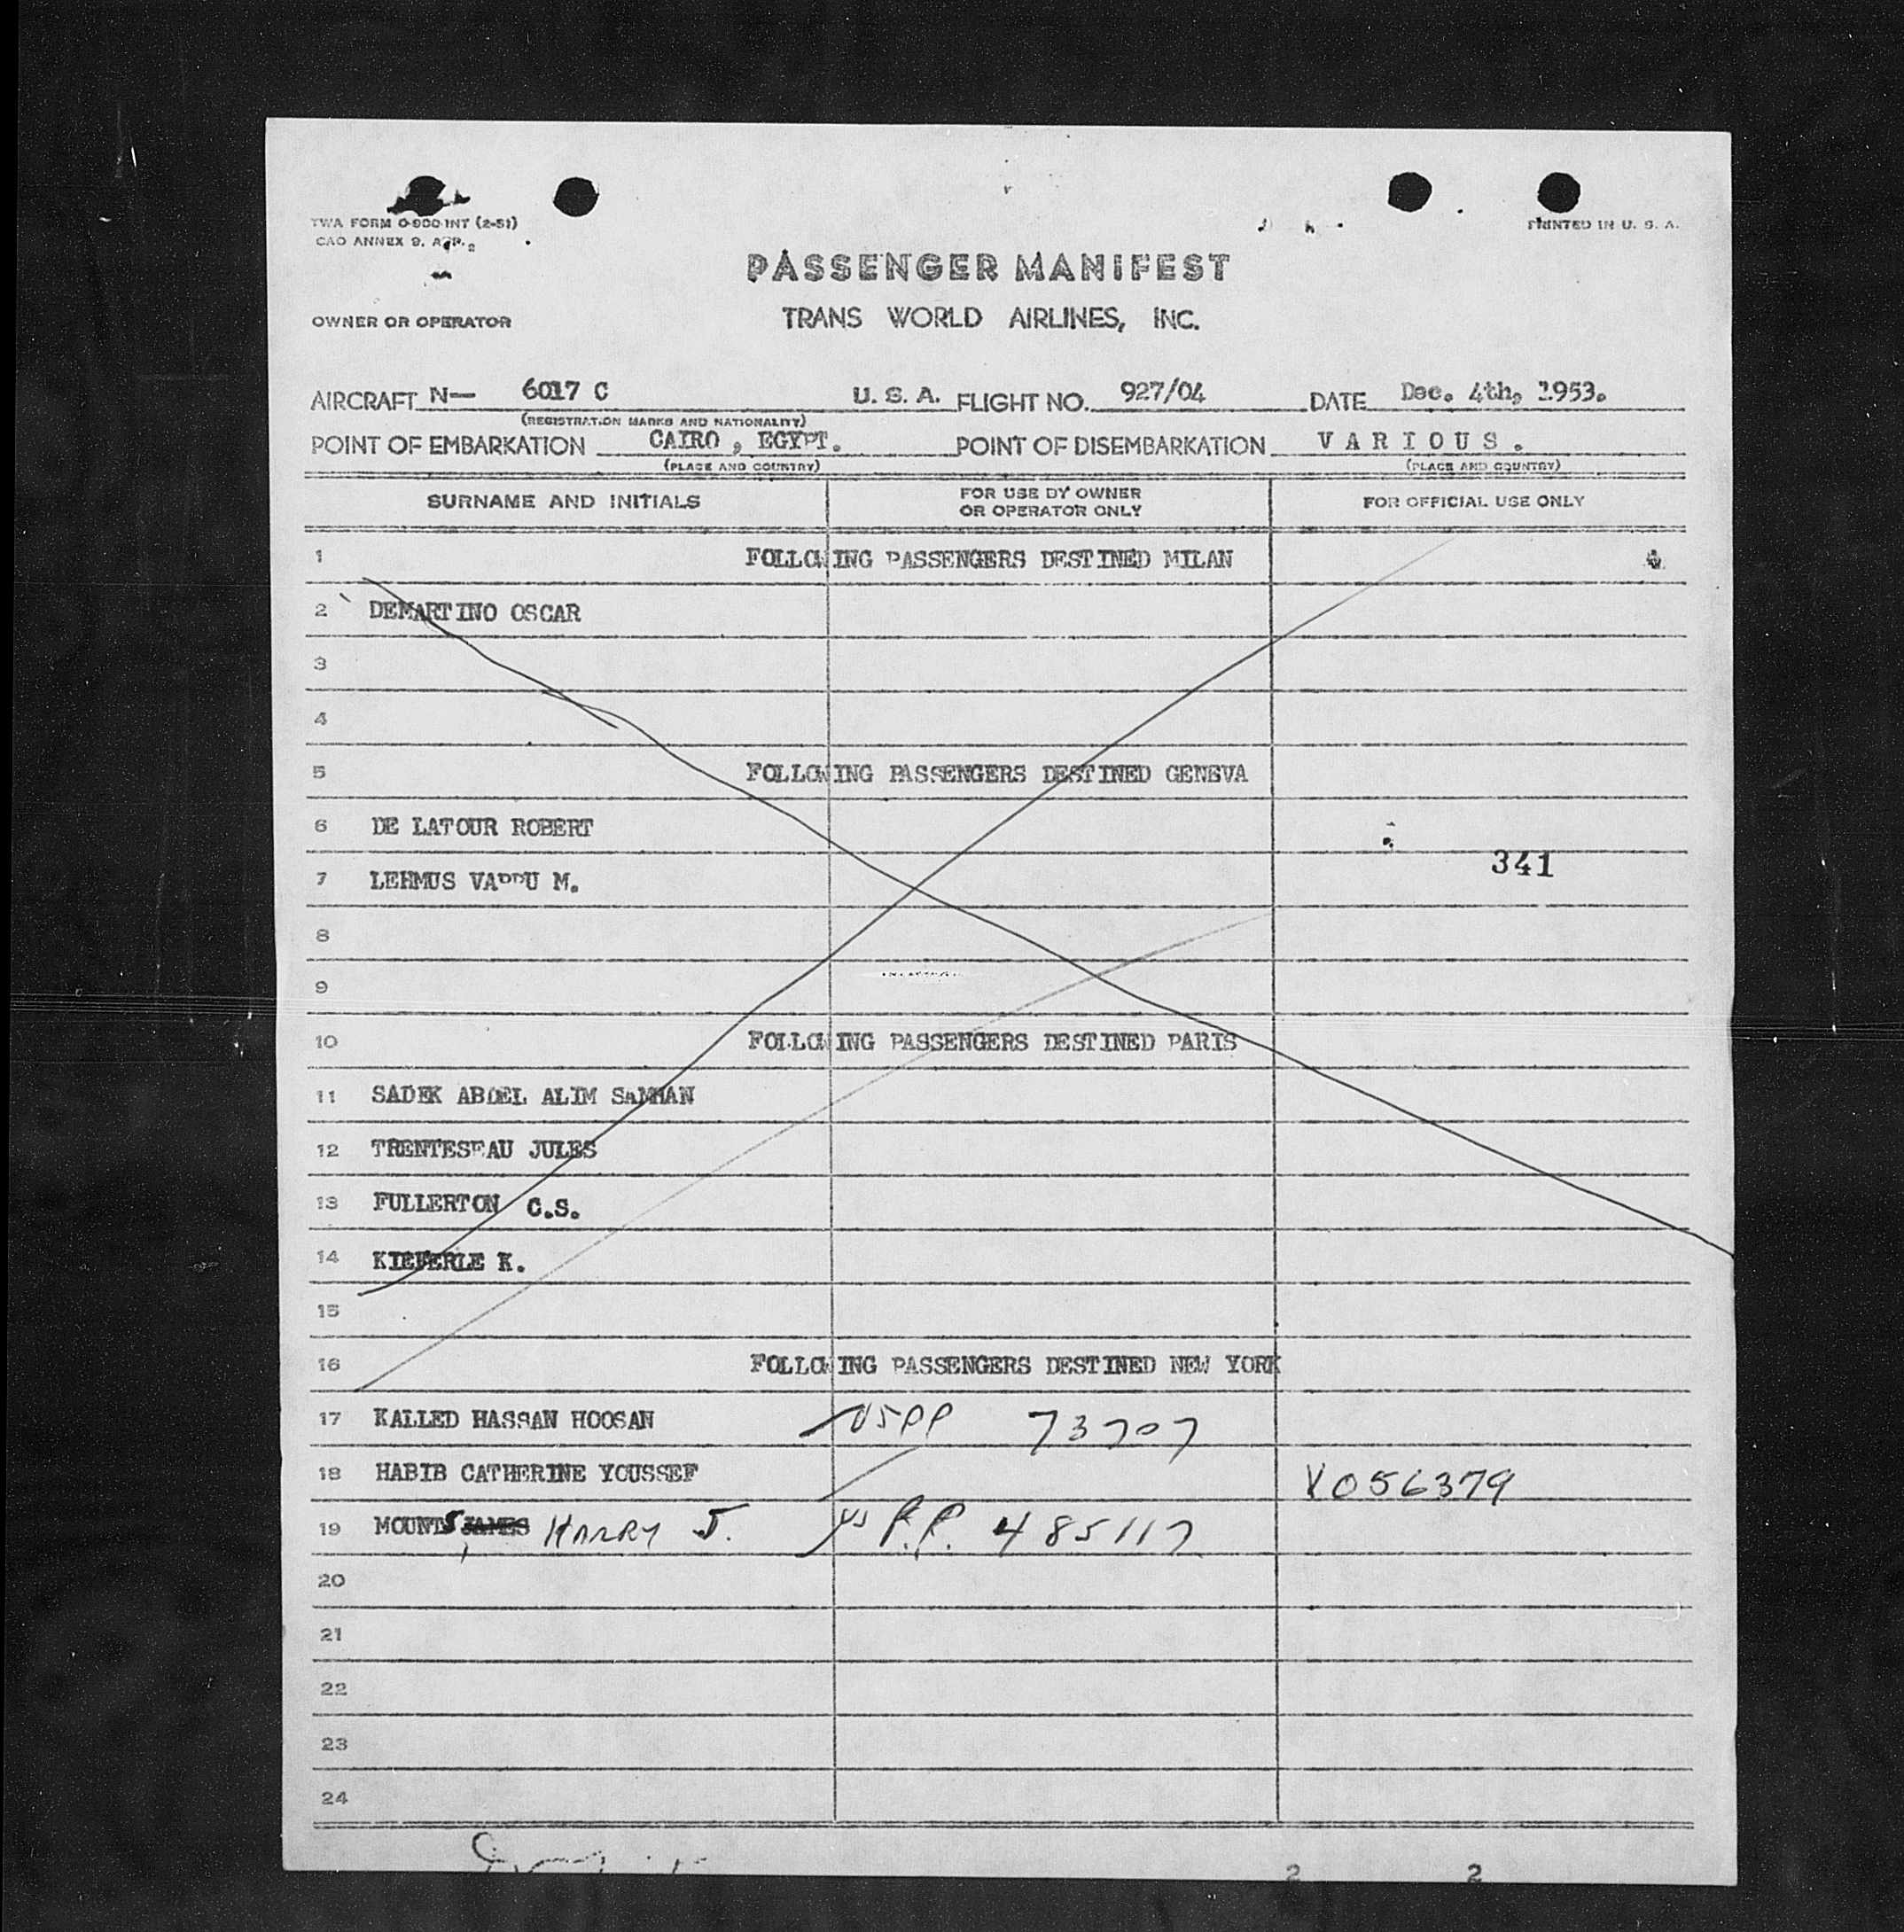 TWA FORM O-900-INT (2-51)
CAO ANNEX 9, APP. 2
PRINTED IN U. S. A.
PASSENGER MANIFEST
OWNER OR OPERATOR
TRANS WORLD AIRLINES, INC.
AIRCRAFT N— 6017 C U. S. A. FLIGHT NO. 927/04 DATE Dec. 4th, 1953.
(REGISTRATION MARKS AND NATIONALITY)
POINT OF EMBARKATION CAIRO , EGYPT. POINT OF DISEMBARKATION VARIOUS.
(PLACE AND COUNTRY) (PLACE AND COUNTRY)
SURNAME AND INITIALS FOR USE BY OWNER OR OPERATOR ONLY FOR OFFICIAL USE ONLY
1 FOLLOWING PASSENGERS DESTINED MILAN
2 DEMARTINO OSCAR
3
4
5 FOLLOWING PASSENGERS DESTINED GENEVA
6 DE LATOUR ROBERT
341
7 LEHMUS VAPPU M.
8
9
10 FOLLOWING PASSENGERS DESTINED PARIS
11 SADEK ABDEL ALIM SAMMAN
12 TRENTESEAU JULES
13 FULLERTON C.S.
14 KIEFERLE K.
15
16 FOLLOWING PASSENGERS DESTINED NEW YORK
17 KALLED HASSAN HOOSAN USPP 73707
18 HABIB CATHERINE YOUSSEF V056379
19 MOUNTS JAMES HARRY J. US P.P. 485117
20
21
22
23
24
2 2